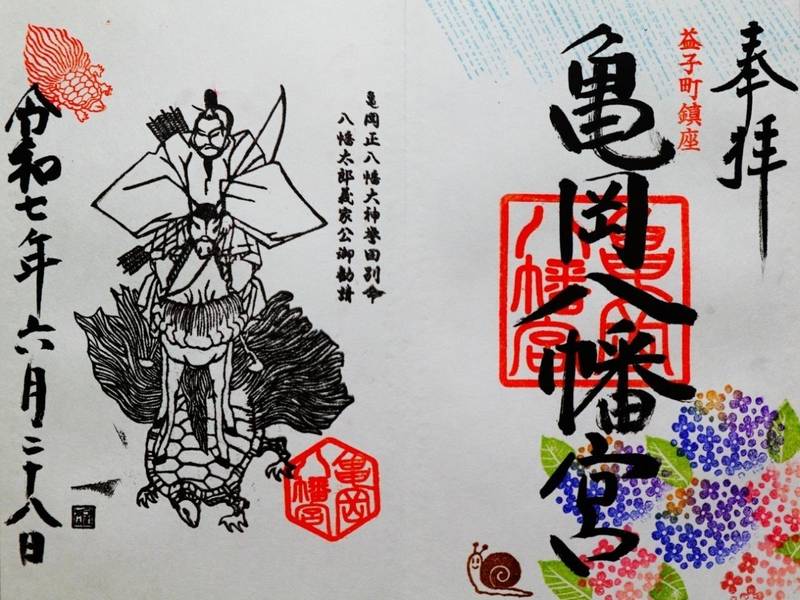 奉拝
益子町鎮座
亀岡八幡宮
亀岡八幡宮
亀岡正八幡大神誉田別命
八幡太郎義家公御勧請
亀岡八幡宮
令和七年六月二十八日